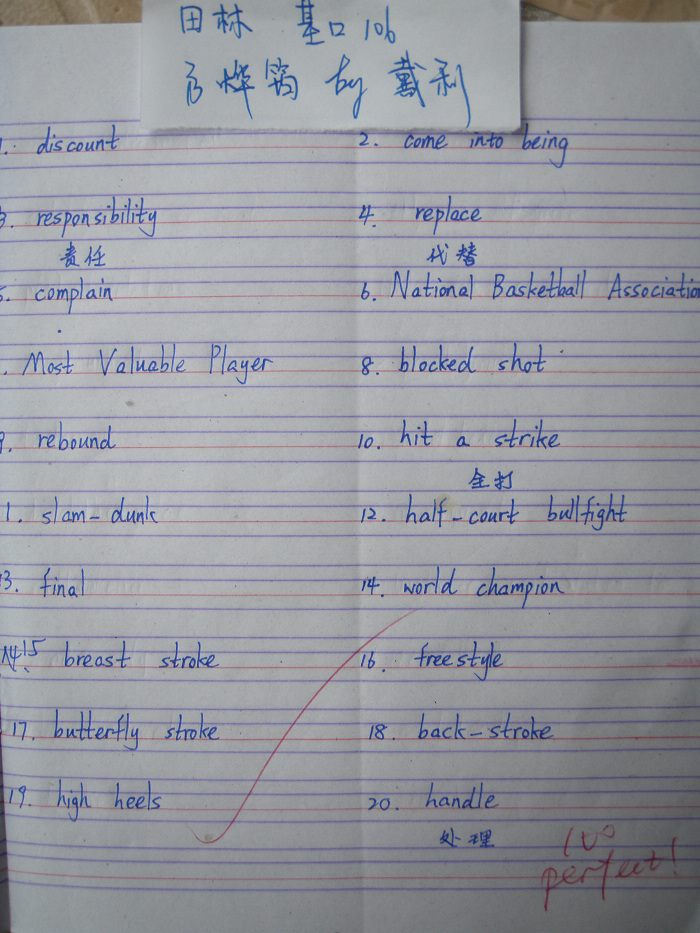 田林 基口 106
烨筠 by 戴利
1. discount 2. come into being
3. responsibility 4. replace
责任 代替
5. complain 6. National Basketball Association
. Most Valuable Player 8. blocked shot
9. rebound 10. hit a strike
全打
1. slam-dunk 12. half-court bullfight
13. final 14. world champion
15 breast stroke 16. freestyle
17. butterfly stroke 18. back-stroke
19. high heels 20. handle
处理
100
perfect!